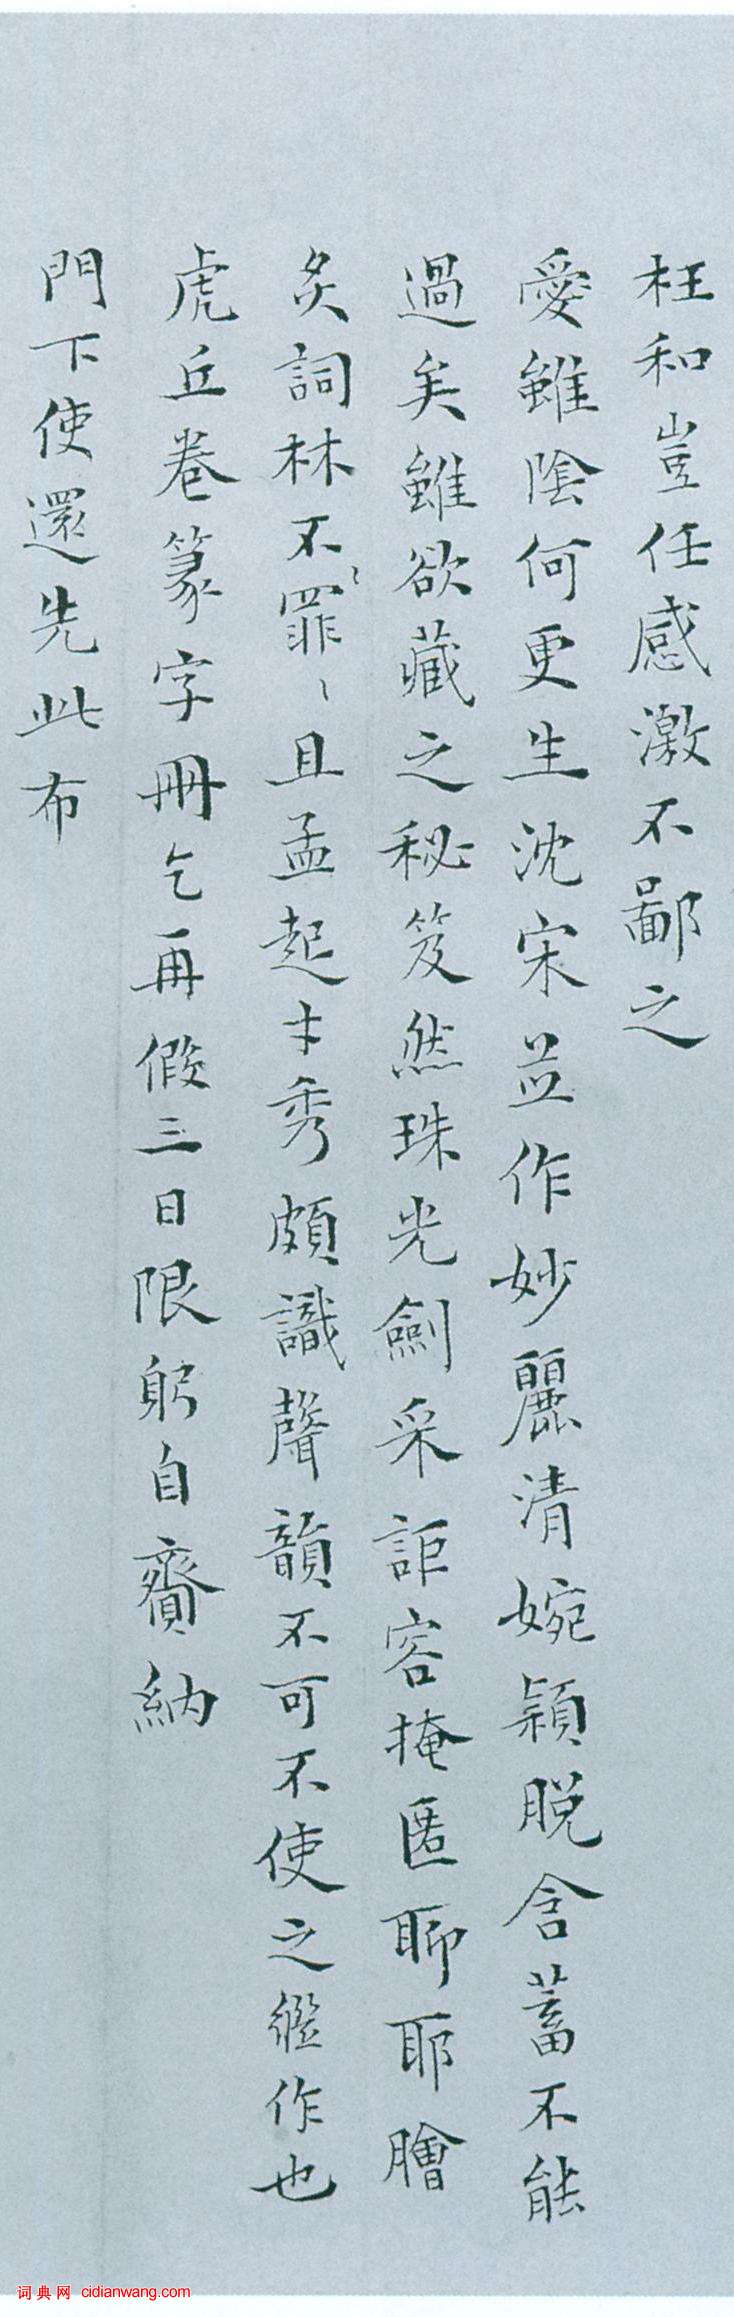 枉和豈任感激不鄙之
愛雖陰何更生沈宋並作妙麗清婉穎脱含蓄不能
過矣雖欲藏之秘笈然珠光劍采詎容掩匿聊耶膾
炙詞林不罪〻〻且孟起才秀頗識聲韻不可不使之繼作也
虎丘卷篆字冊乞再假三日限躬自齎納
門下使還先此布
词典网 cidianwang.com